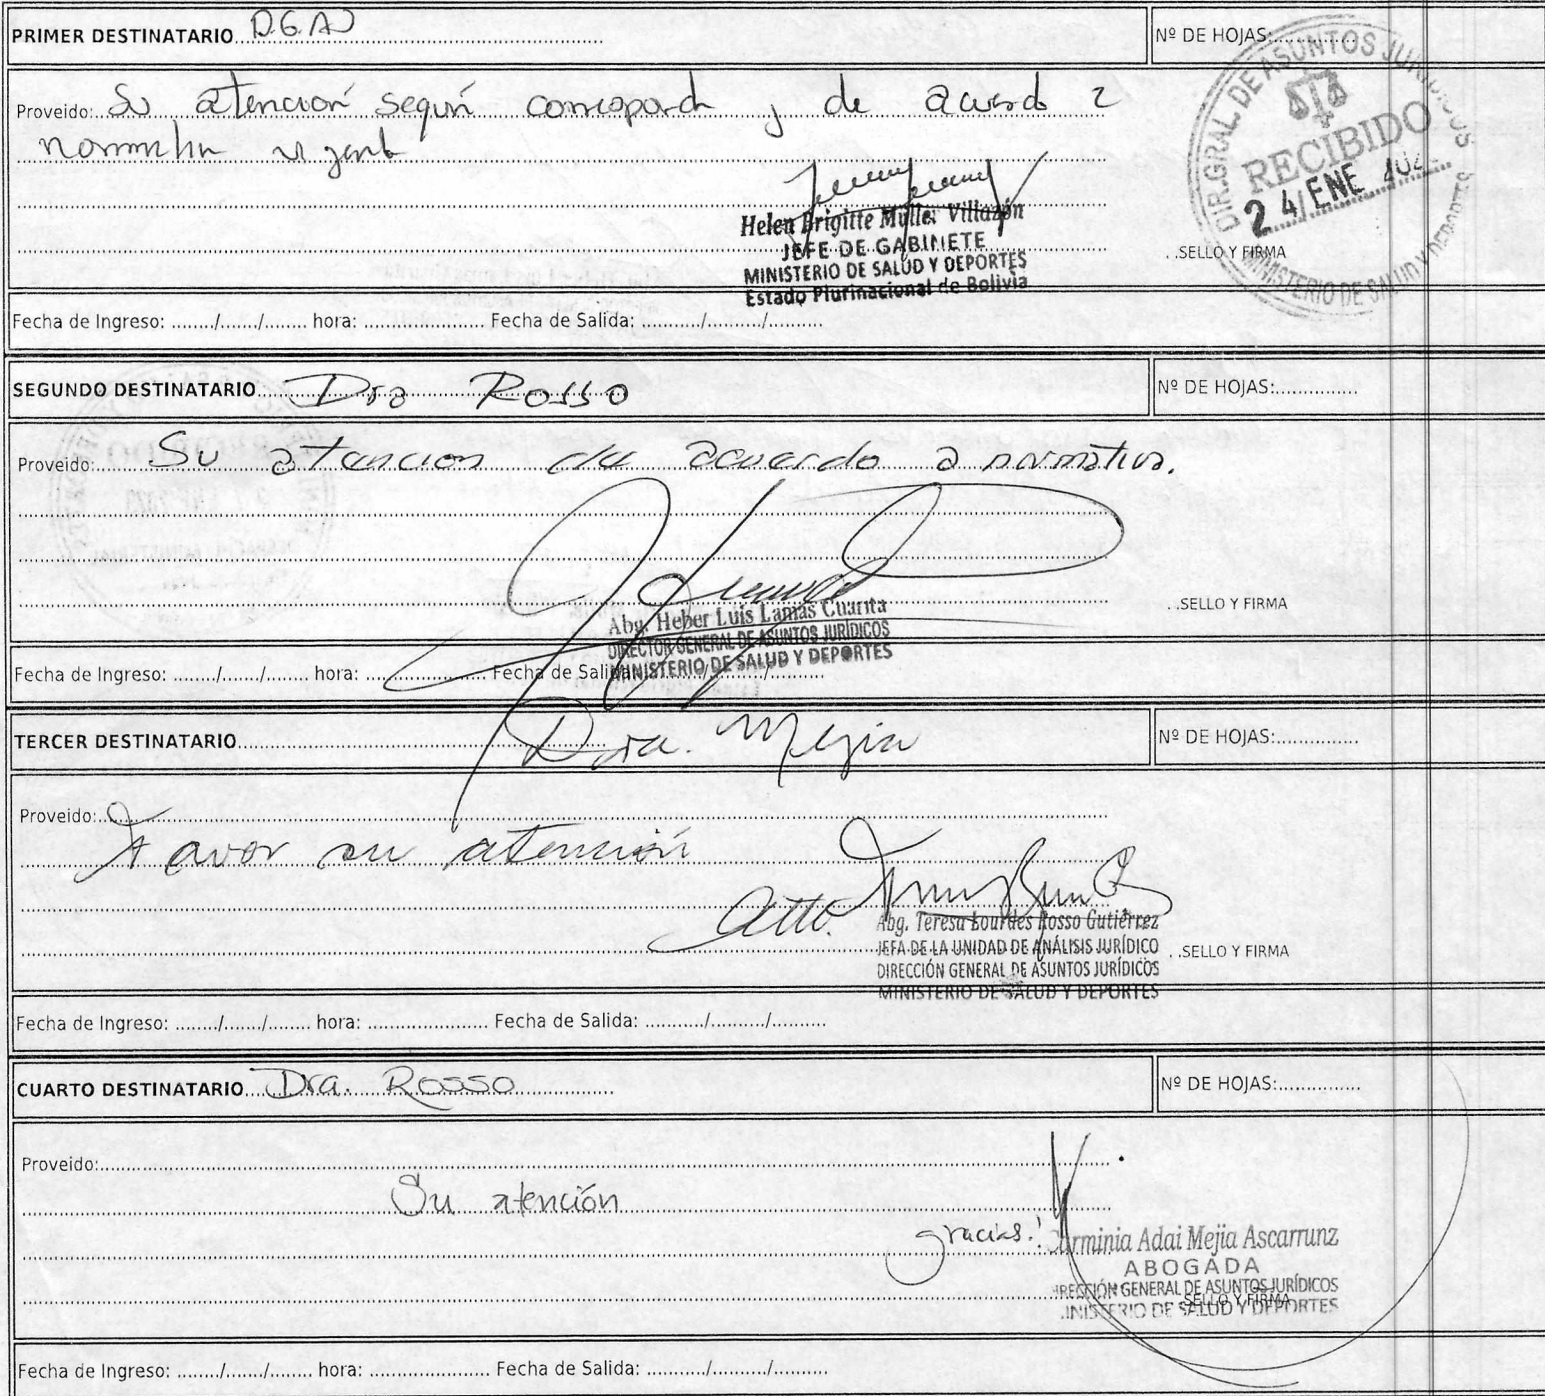 PRIMER DESTINATARIO D.G.AJ
Nº DE HOJAS:
DIR.GRAL. DE ASUNTOS JURIDICOS
RECIBIDO
24 ENE
MINISTERIO DE SALUD Y DEPORTES
Proveido: Su atención según corresponda y de acuerdo a
normativa vigente
Helen Brigitte Müller Villazón
JEFE DE GABINETE
MINISTERIO DE SALUD Y DEPORTES
Estado Plurinacional de Bolivia
SELLO Y FIRMA
Fecha de Ingreso: ......../......./........ hora: ...................... Fecha de Salida: .........../........../..........
SEGUNDO DESTINATARIO Dra Rosso
Nº DE HOJAS:
Proveido: Su atencion de acuerdo a normativa.
Abg. Heber Luis Lamas Cuarita
DIRECTOR GENERAL DE ASUNTOS JURÍDICOS
MINISTERIO DE SALUD Y DEPORTES
SELLO Y FIRMA
Fecha de Ingreso: ......../......./........ hora: ...................... Fecha de Salida: .........../........../..........
TERCER DESTINATARIO Dra. Mejia
Nº DE HOJAS:
Proveido:
Favor su atención
Atte.
Abg. Teresa Lourdes Rosso Gutiérrez
JEFA DE LA UNIDAD DE ANÁLISIS JURÍDICO
DIRECCIÓN GENERAL DE ASUNTOS JURÍDICOS
MINISTERIO DE SALUD Y DEPORTES
SELLO Y FIRMA
Fecha de Ingreso: ......../......./........ hora: ...................... Fecha de Salida: .........../........../..........
CUARTO DESTINATARIO Dra. Rosso
Nº DE HOJAS:
Proveido:
Su atención
gracias!
Adai Mejia Ascarrunz
ABOGADA
DIRECCIÓN GENERAL DE ASUNTOS JURÍDICOS
MINISTERIO DE SALUD Y DEPORTES
SELLO Y FIRMA
Fecha de Ingreso: ......../......./........ hora: ...................... Fecha de Salida: .........../........../..........